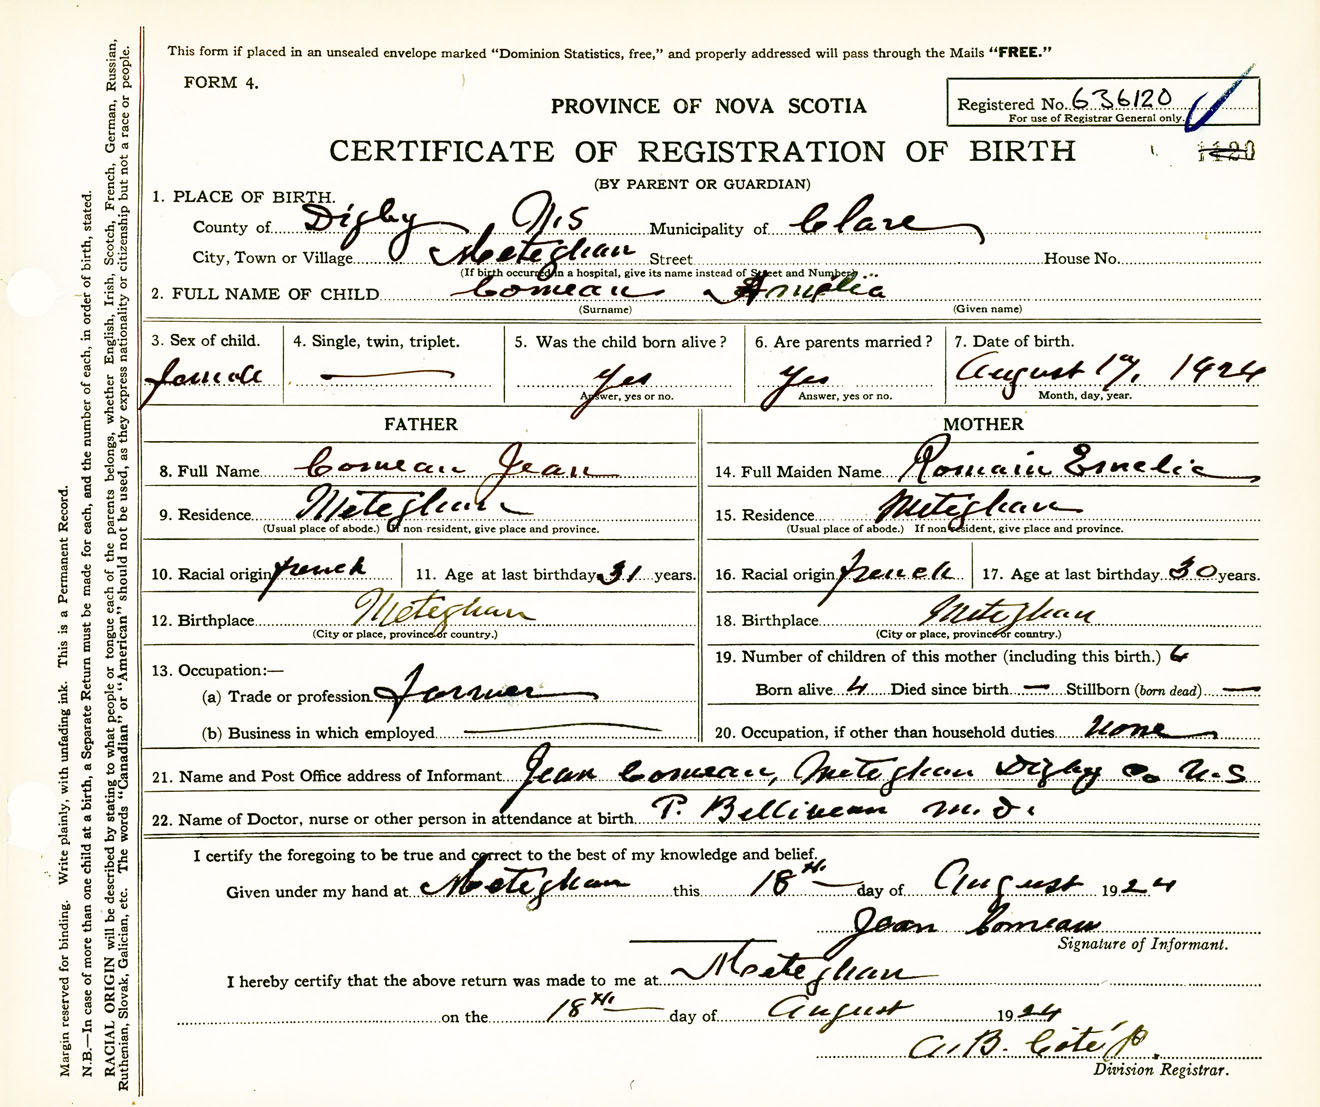 This form if placed in an unsealed envelope marked “Dominion Statistics, free,” and properly addressed will pass through the Mails “FREE.”
FORM 4.
Registered No. 636120
PROVINCE OF NOVA SCOTIA
For use of Registrar General only.
CERTIFICATE OF REGISTRATION OF BIRTH
(BY PARENT OR GUARDIAN)
1. PLACE OF BIRTH.
County of Digby N.S Municipality of Clare
City, Town or Village Meteghan Street House No.
(If birth occurred in a hospital, give its name instead of Street and Number)
2. FULL NAME OF CHILD Comeau Amélia
(Surname) (Given name)
3. Sex of child. 4. Single, twin, triplet. 5. Was the child born alive? 6. Are parents married? 7. Date of birth.
female — yes yes August 17, 1924
Answer, yes or no. Answer, yes or no. Month, day, year.
FATHER MOTHER
8. Full Name Comeau Jean 14. Full Maiden Name Romain Emelie
9. Residence Meteghan 15. Residence Meteghan
(Usual place of abode.) If non-resident, give place and province. (Usual place of abode.) If non-resident, give place and province.
10. Racial origin french 11. Age at last birthday 31 years. 16. Racial origin french 17. Age at last birthday 30 years.
12. Birthplace Meteghan 18. Birthplace Meteghan
(City or place, province or country.) (City or place, province or country.)
13. Occupation:— 19. Number of children of this mother (including this birth.) 4
(a) Trade or profession farmer Born alive 4 Died since birth — Stillborn (born dead) —
(b) Business in which employed — 20. Occupation, if other than household duties None
21. Name and Post Office address of Informant Jean Comeau, Meteghan Digby Co N.S
22. Name of Doctor, nurse or other person in attendance at birth P. Belliveau M.D.
I certify the foregoing to be true and correct to the best of my knowledge and belief.
Given under my hand at Meteghan this 18th day of August 1924
Jean Comeau
Signature of Informant.
I hereby certify that the above return was made to me at Meteghan
on the 18th day of August 1924
A. B. Côté p.
Division Registrar.
Margin reserved for binding. Write plainly, with unfading ink. This is a Permanent Record.
N.B.—In case of more than one child at a birth, a Separate Return must be made for each, and the number of each, in order of birth, stated.
RACIAL ORIGIN will be described by stating to what people or tongue each of the parents belongs, whether English, Irish, Scotch, French, German, Russian,
Ruthenian, Slovak, Galician, etc. The words “Canadian” or “American” should not be used, as they express nationality or citizenship but not a race or people.